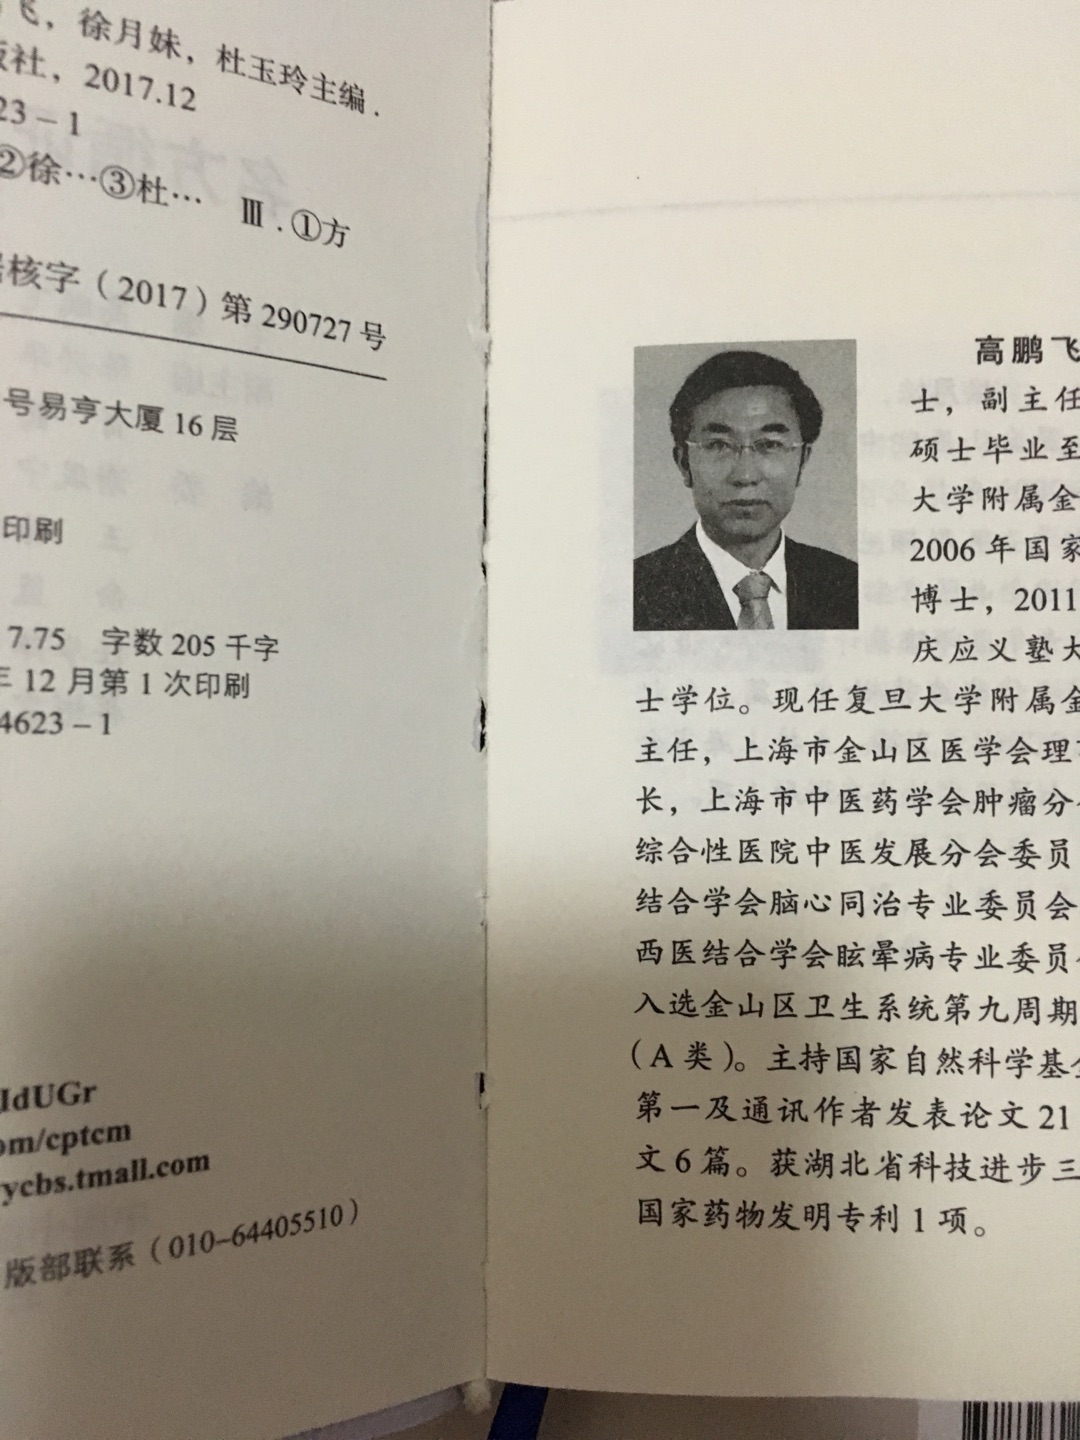 飞，徐月妹，杜玉玲主编．
版社，2017.12
23－1
②徐…③杜… Ⅲ．①方
核字（2017）第 290727 号
号易亨大厦 16 层
印刷
7.75 字数 205 千字
年 12 月第 1 次印刷
4623－1
IdUGr
om/cptcm
ycbs.tmall.com
版部联系（010-64405510）
高鹏飞
士，副主任
硕士毕业至
大学附属金
2006 年国家
博士，2011
庆应义塾大
士学位。现任复旦大学附属金
主任，上海市金山区医学会理事
长，上海市中医药学会肿瘤分
综合性医院中医发展分会委员
结合学会脑心同治专业委员会
西医结合学会眩晕病专业委员
入选金山区卫生系统第九周期
（A 类）。主持国家自然科学基金
第一及通讯作者发表论文 21
文 6 篇。获湖北省科技进步三
国家药物发明专利 1 项。